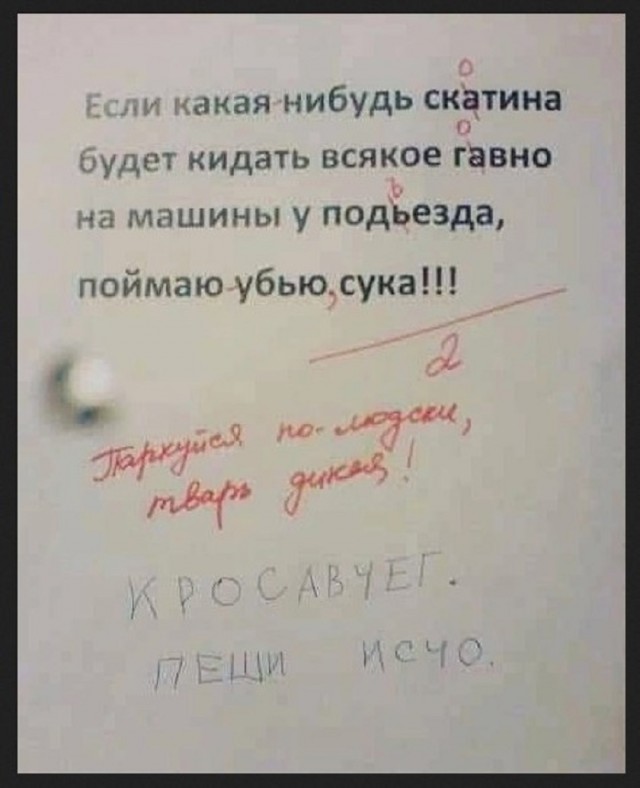 Если какая-нибудь скатина
о
будет кидать всякое гавно
о
на машины у подьезда,
ъ
поймаю-убью, сука!!!
2
Паркуйся по-людски,
тварь дикая!
КРОСАВЧЕГ.
ПЕЩИ ИСЧО.